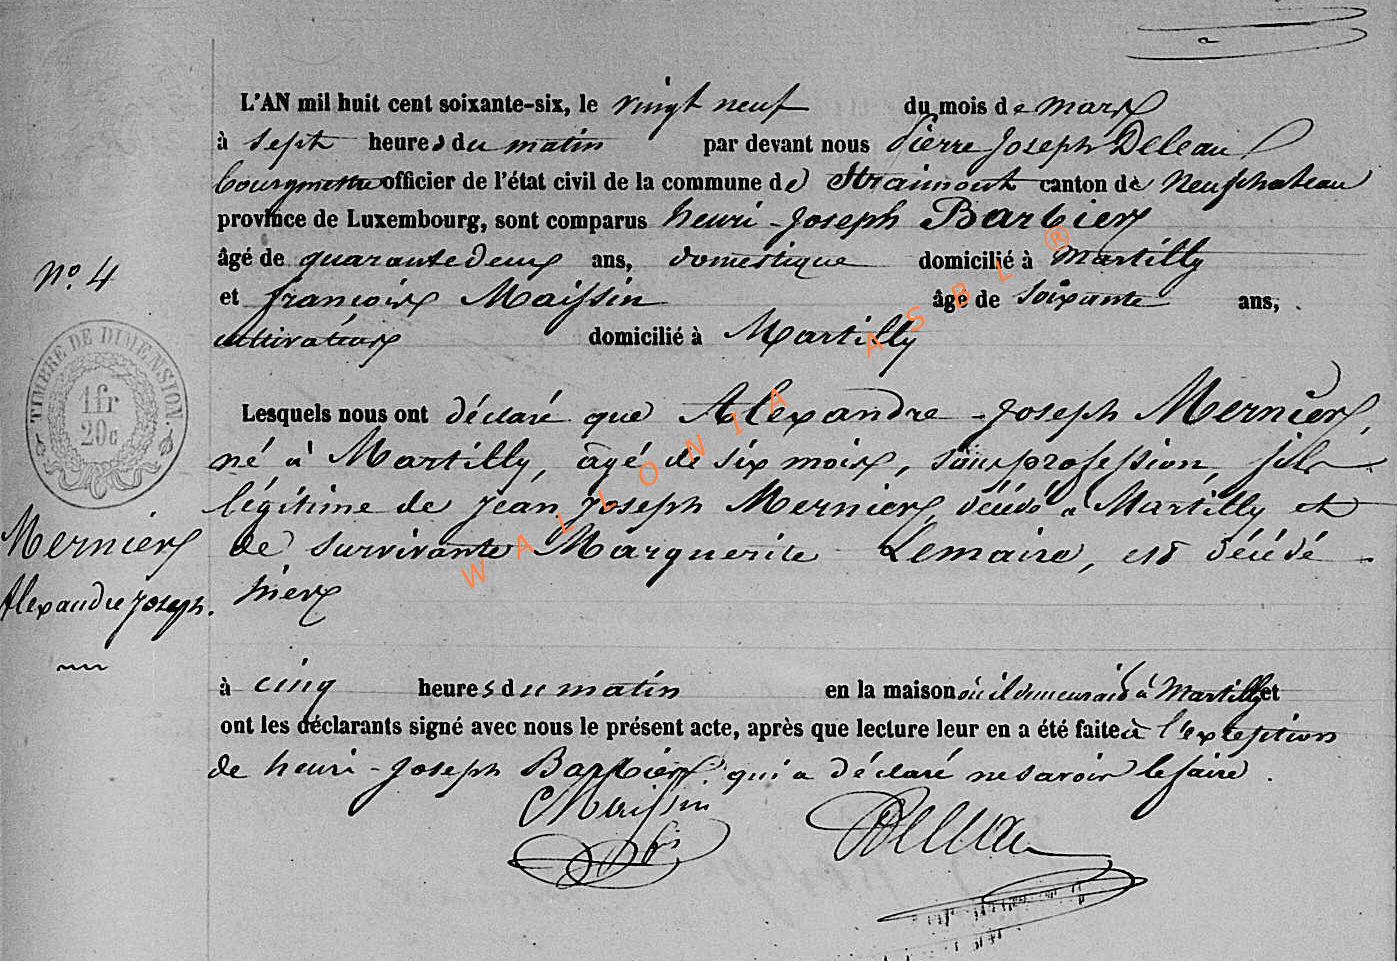 L'AN mil huit cent soixante-six, le vingt neuf du mois de mars
à sept heures du matin par devant nous Pierre Joseph Deleau
bourgmestre officier de l'état civil de la commune de Straimont canton de Neufchateau
province de Luxembourg, sont comparus henri-Joseph Barbier
âgé de quarante deux ans, domestique domicilié à Martilly
N° 4
et françois Maissin âgé de soixante ans,
cultivateur domicilié à Martilly
TIMBRE DE DIMENSION.
1 fr
20 c
Lesquels nous ont déclaré que Alexandre-Joseph Mernier,
né à Martilly, âgé de six mois, sans profession, fils
légitime de Jean Joseph Mernier décédé à Martilly et
de survivante Marguerite Lemaire, est décédé
hier
Mernier
Alexandre Joseph.
à cinq heures du matin en la maison où il demeurait à Martilly et
ont les déclarants signé avec nous le présent acte, après que lecture leur en a été faite à l'exception
de henri-Joseph Barbier qui a déclaré ne savoir le faire.
Maissin
Deleau
WALLONIA ASBL ®